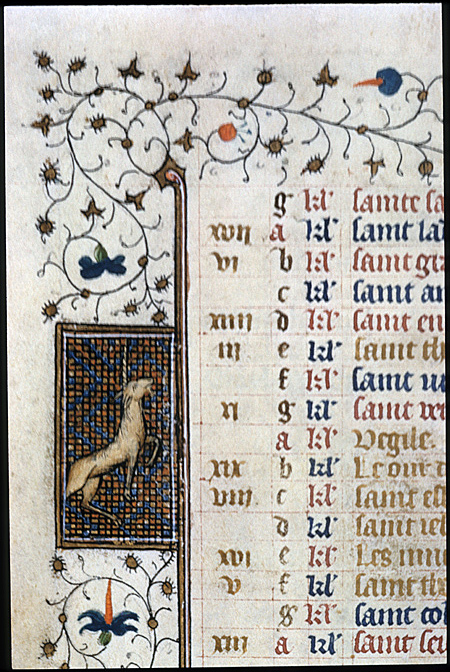 g kl' sainte sa
xvii a kl' saint la
vi b kl' saint gr
c kl' saint
xiiii d kl' saint en
iii e kl' saint th
f kl' saint
xi g kl' saint
a kl' Vegile.
xix b kl' Le iour
viii c kl' saint es
d kl' saint ieh
xvi e kl' Les inno
v f kl' saint th
g kl' saint col
xiii a kl' saint